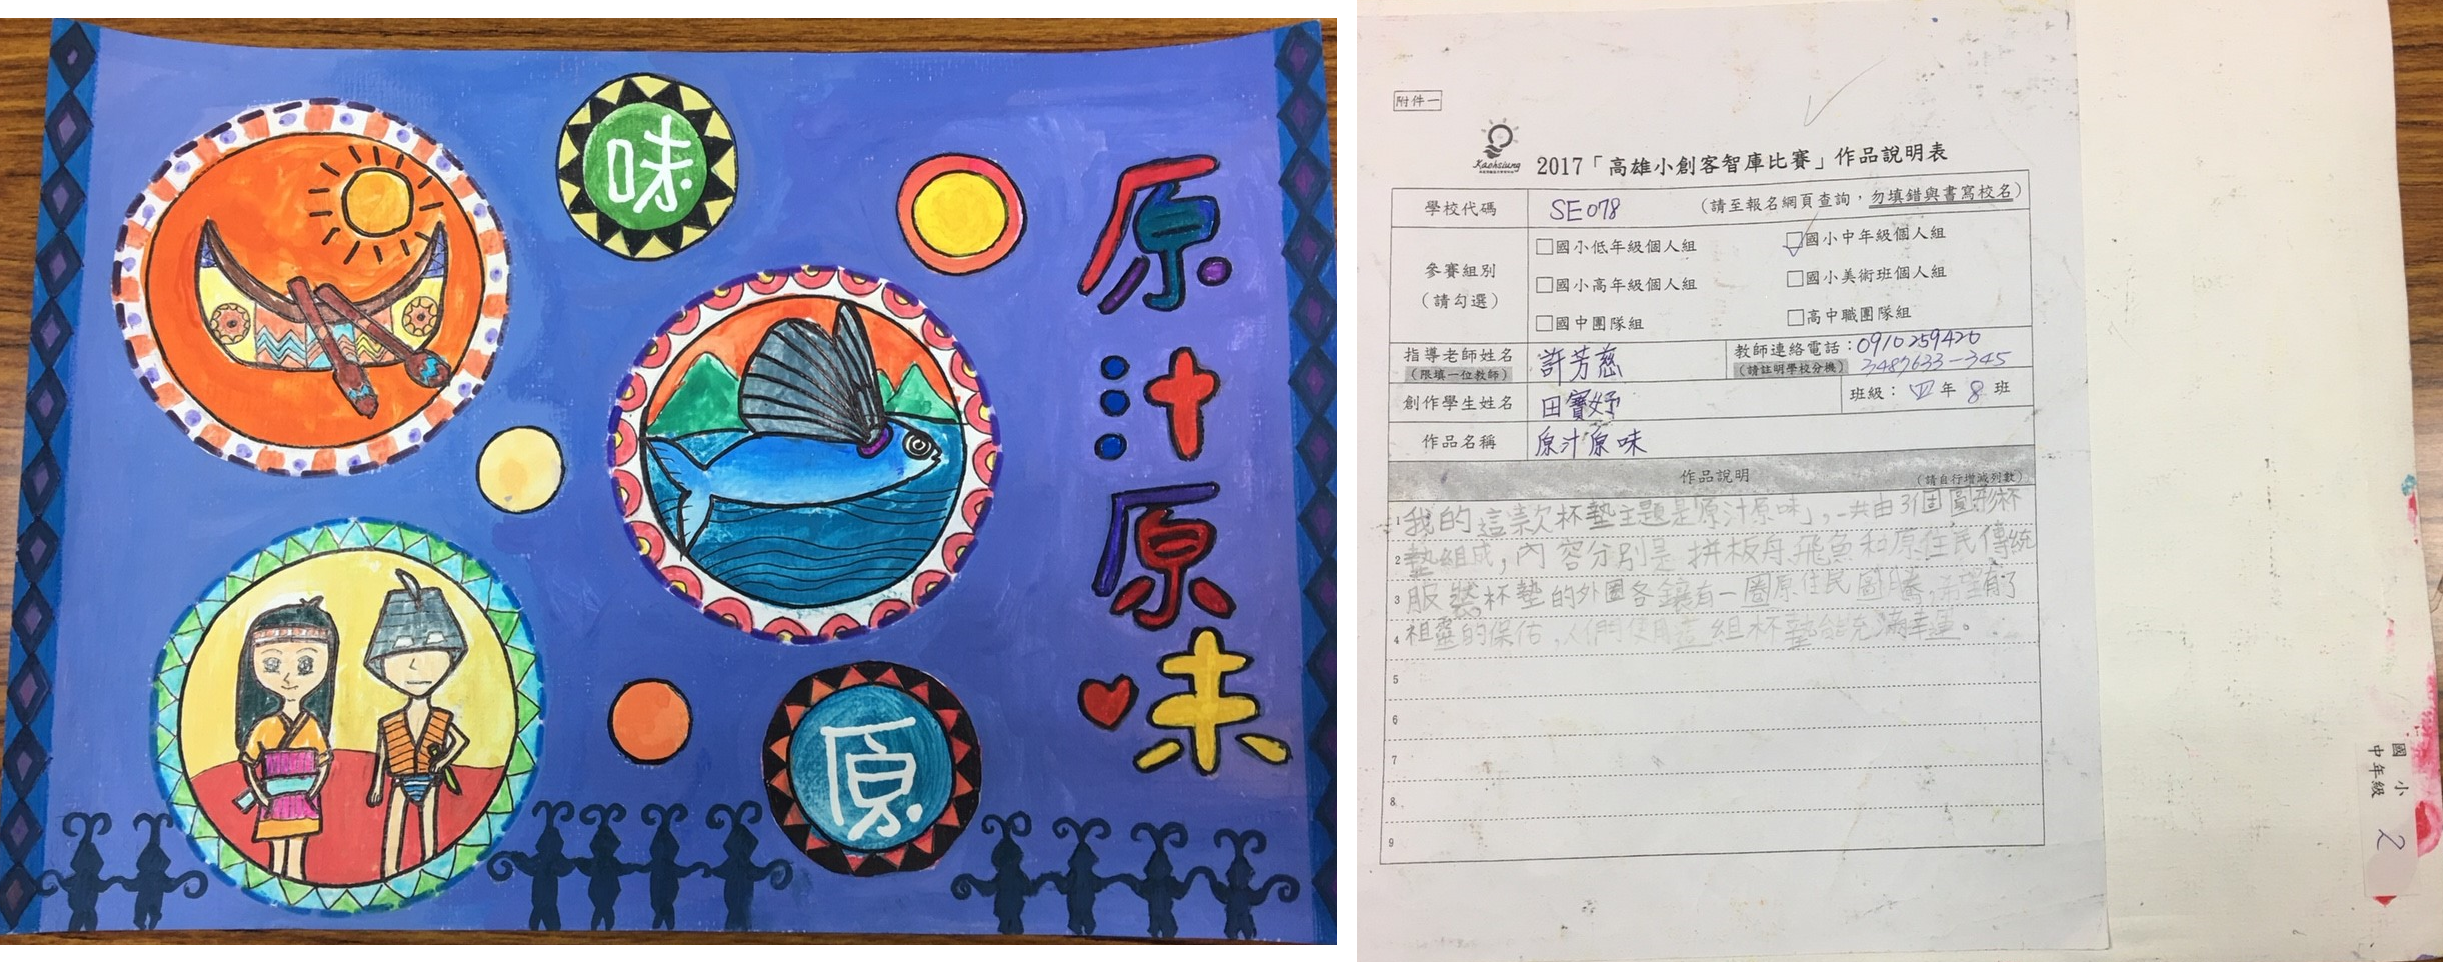 味
原汁原味
原
附件一
Kaohsiung
2017「高雄小創客智庫比賽」作品說明表
學校代碼 SE078 （請至報名網頁查詢，勿填錯與書寫校名）
參賽組別
（請勾選）
□國小低年級個人組 ☑國小中年級個人組
□國小高年級個人組 □國小美術班個人組
□國中團隊組 □高中職團隊組
指導老師姓名 許芳慈 教師連絡電話：0910259420
（限填一位教師） （請註明學校分機） 3487633-345
創作學生姓名 田寶妤 班級：四年8班
作品名稱 原汁原味
作品說明 （請自行增減列數）
1 我的這款杯墊主題是「原汁原味」，一共由3個圓形杯
2 墊組成，內容分別是拼板舟、飛魚和原住民傳統
3 服裝。杯墊的外圍各鑲有一圈原住民圖騰，希望有了
4 祖靈的保佑，人們使用這組杯墊能充滿幸運。
5
6
7
8
9
國小
中年級
2